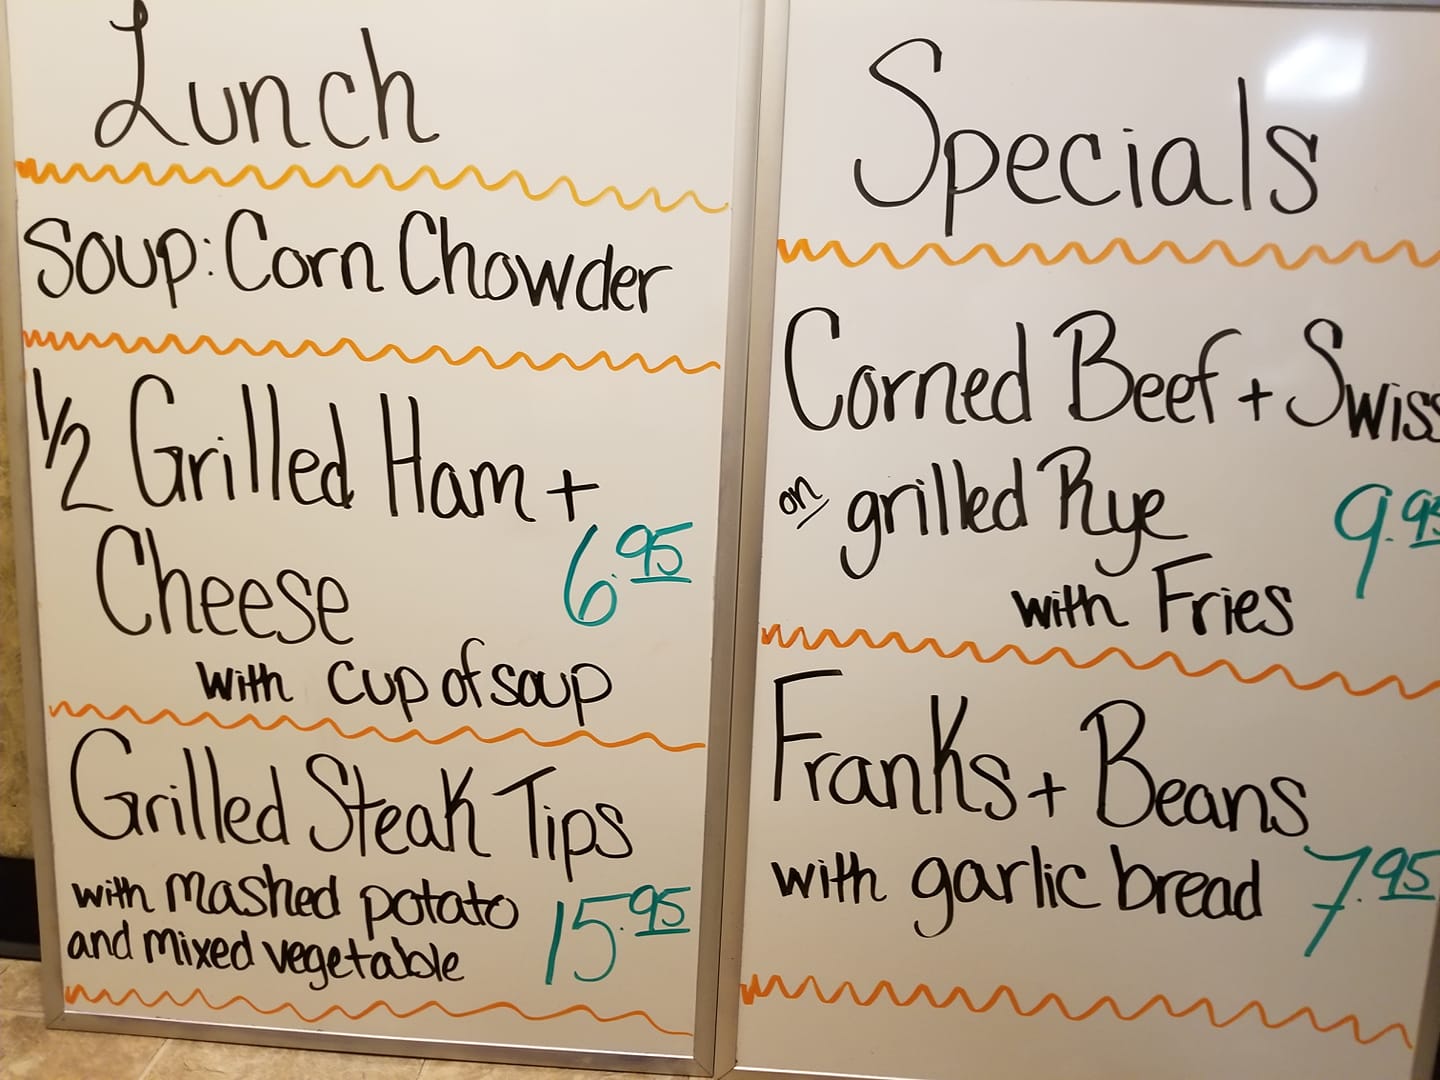 Lunch
Soup: Corn Chowder
1/2 Grilled Ham +
Cheese 6.95
with cup of soup
Grilled Steak Tips
with mashed potato
and mixed vegetable 15.95
Specials
Corned Beef + Swiss
on grilled Rye 9.95
with Fries
Franks + Beans
with garlic bread 7.95